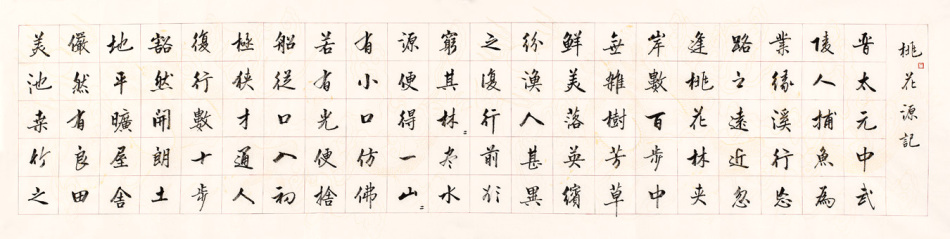 桃花源記
晉太元中武
陵人捕魚為
業緣溪行忘
路之遠近忽
逢桃花林夾
岸數百步中
無雜樹芳草
鮮美落英繽
紛漁人甚異
之復行前欲
窮其林〻盡水
源便得一山〻
有小口仿佛
若有光便捨
船從口入初
極狹才通人
復行數十步
豁然開朗土
地平曠屋舍
儼然有良田
美池桑竹之